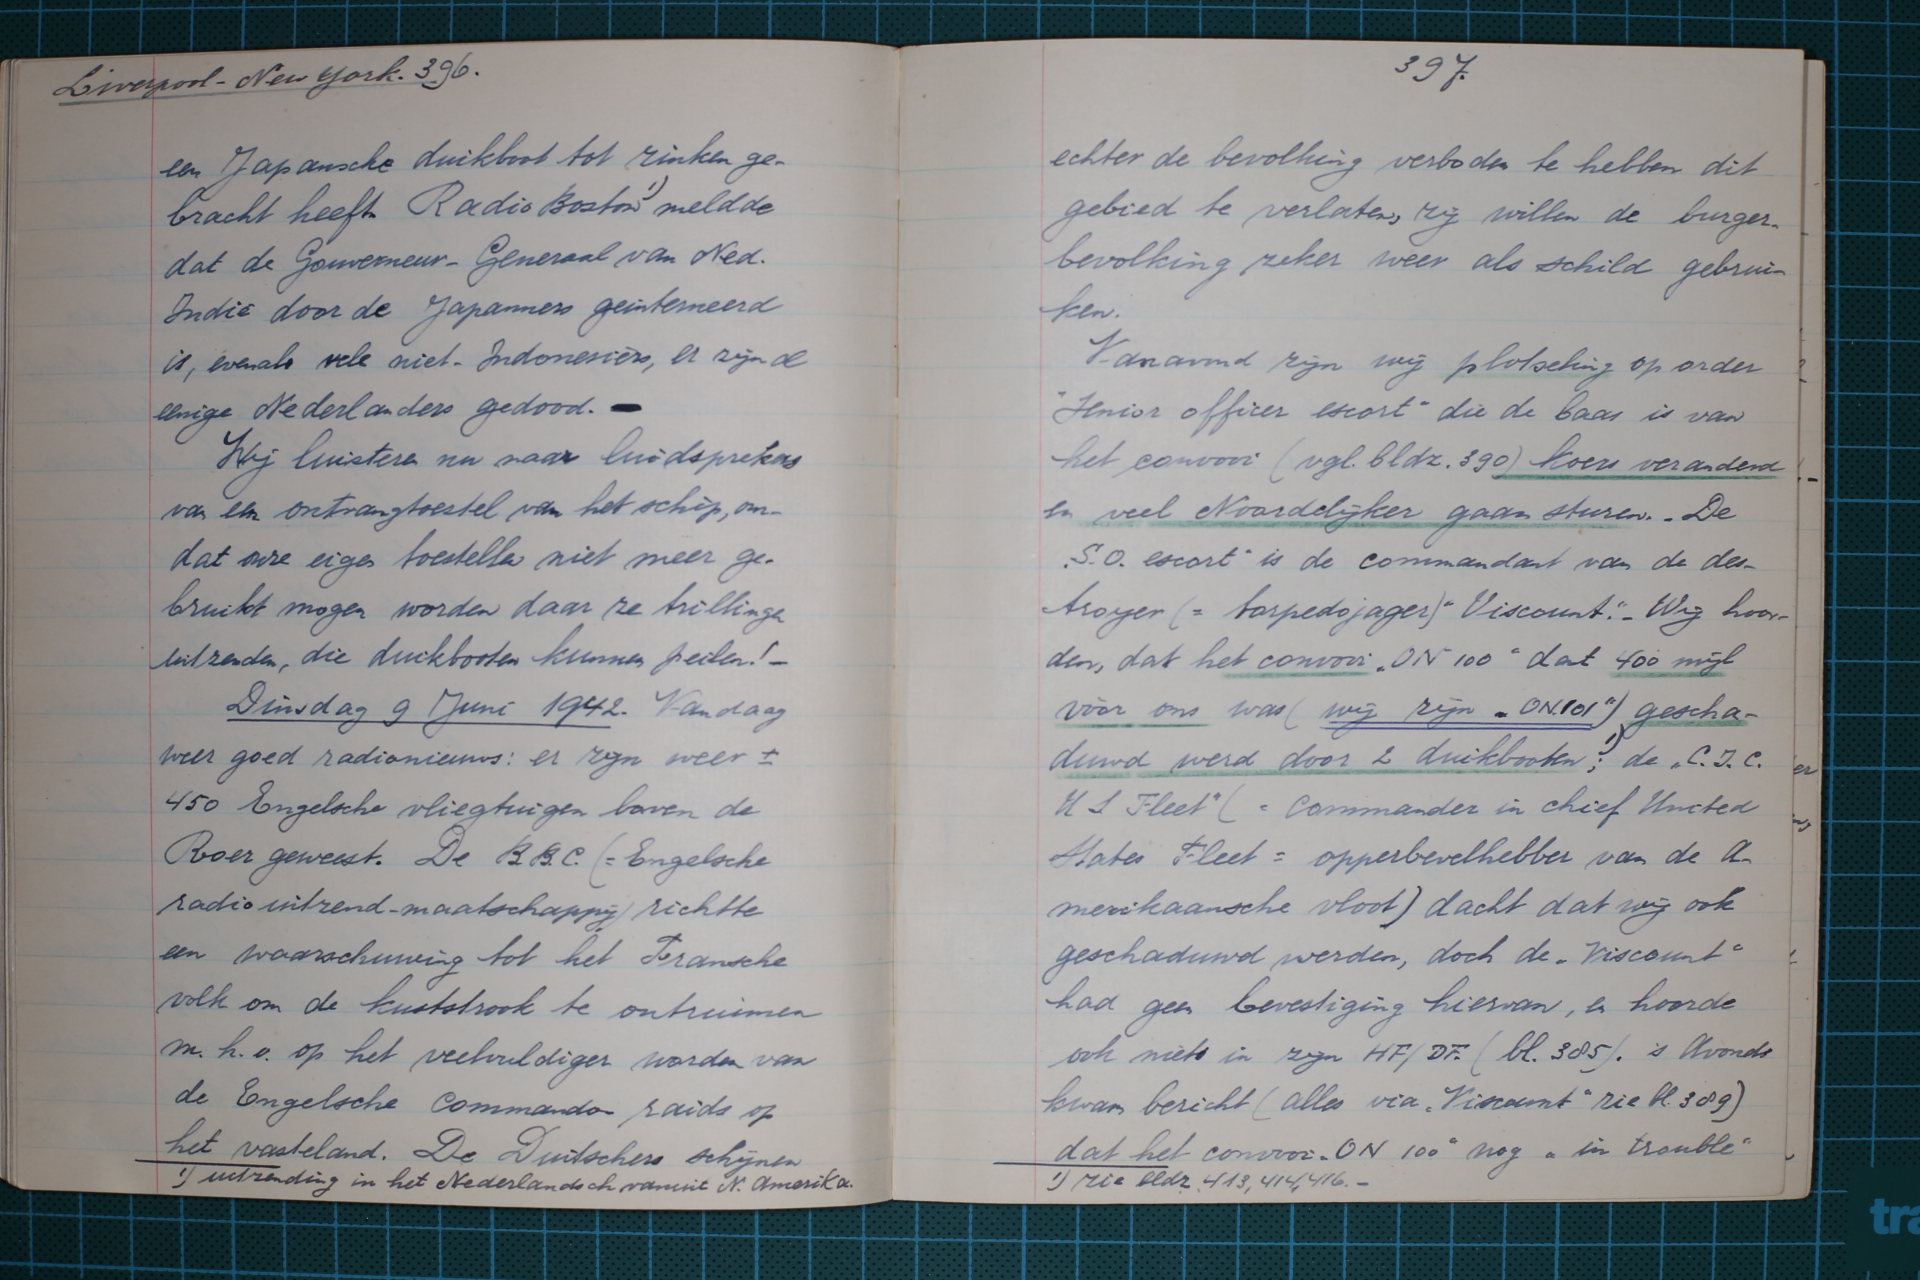 Liverpool - New York. 396.
een Japansche duikboot tot zinken ge-
bracht heeft. Radio Boston 1) meldde
dat de Gouverneur-Generaal van Ned.
Indië door de Japanners geinterneerd
is, evenals vele niet-Indonesiërs, er zijn al
eenige Nederlanders gedood. —
Wij luisteren nu naar luidsprekers
van een ontvangtoestel van het schip, om-
dat onze eigen toestellen niet meer ge-
bruikt mogen worden daar ze trillingen
uitzenden, die duikbooten kunnen peilen! -
Dinsdag 9 Juni 1942. Vandaag
weer goed radionieuws: er zijn weer ±
450 Engelsche vliegtuigen boven de
Roer geweest. De B.B.C. (= Engelsche
radio uitzend-maatschappij) richtte
een waarschuwing tot het Fransche
volk om de kuststrook te ontruimen
m.h.o. op het veelvuldiger worden van
de Engelsche commando raids op
het vasteland. De Duitschers schijnen
1) uitzending in het Nederlandsch vanuit N. Amerika.
397.
echter de bevolking verboden te hebben dit
gebied te verlaten, zij willen de burger-
bevolking zeker weer als schild gebrui-
ken.
Vanavond zijn wij plotseling op order
"Senior officer escort" die de baas is van
het convooi (vgl. bldz. 390) koers veranderd
en veel Noordelijker gaan sturen. - De
„S.O. escort" is de commandant van de des-
troyer (= torpedojager) "Viscount". - Wij hoor-
den, dat het convooi „ON 100" dat 400 mijl
vóór ons was (wij zijn „ON 101") gescha-
duwd werd door 2 duikbooten 1); de „C.I.C.
U S Fleet" (= Commander in chief United
States Fleet = opperbevelhebber van de A-
merikaansche vloot) dacht dat wij ook
geschaduwd werden, doch de „Viscount"
had geen bevestiging hiervan, en hoorde
ook niets in zijn HF/DF. (bl. 385). 's Avonds
kwam bericht (alles via „Viscount" zie bl. 389)
dat het convooi „ON 100" nog „in trouble"
1) zie bldz. 413, 414, 416. -
tra